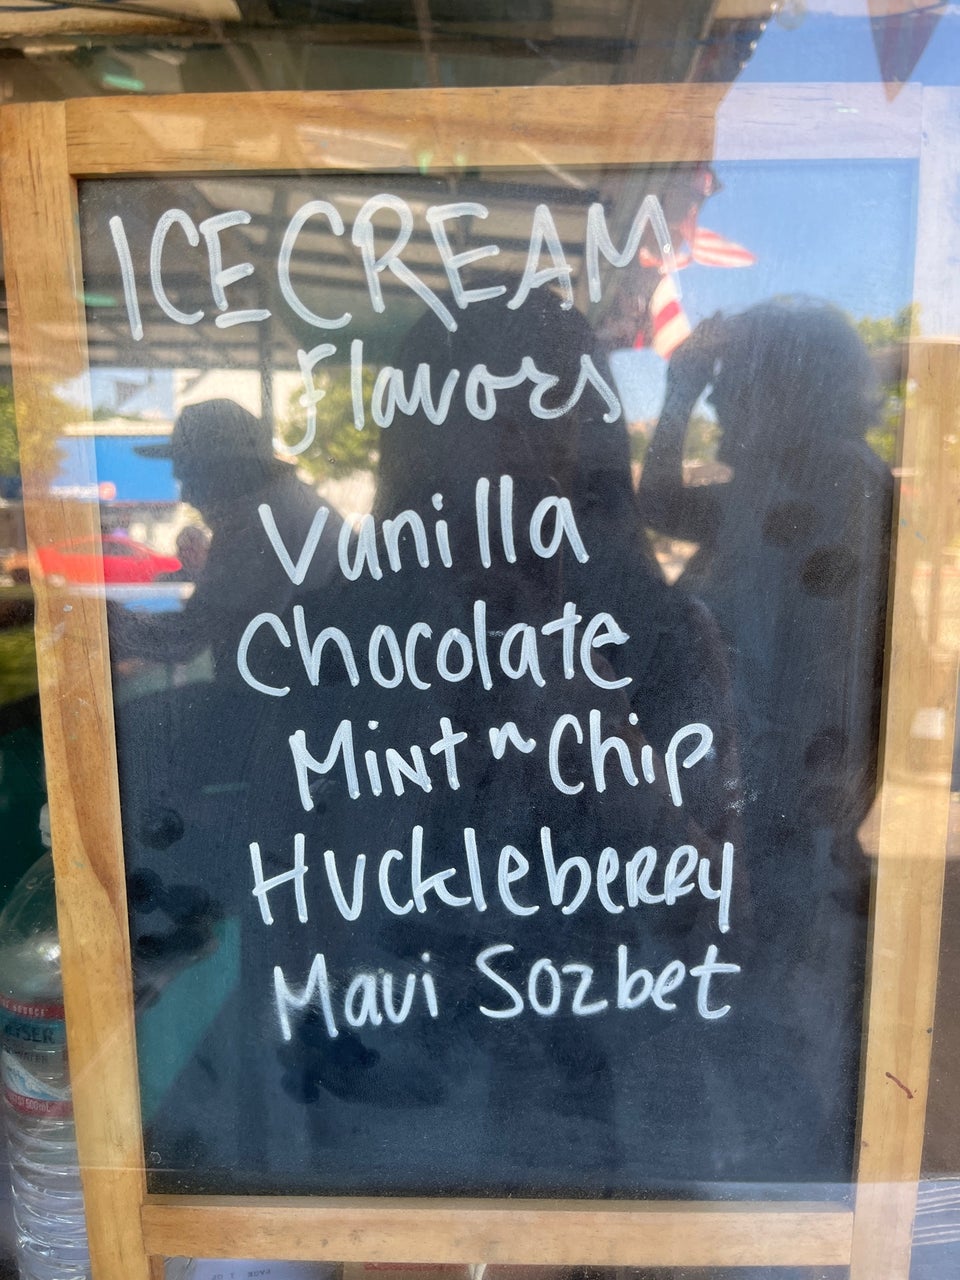 ICE CREAM
Flavors
Vanilla
Chocolate
Mint n Chip
Huckleberry
Maui Sorbet